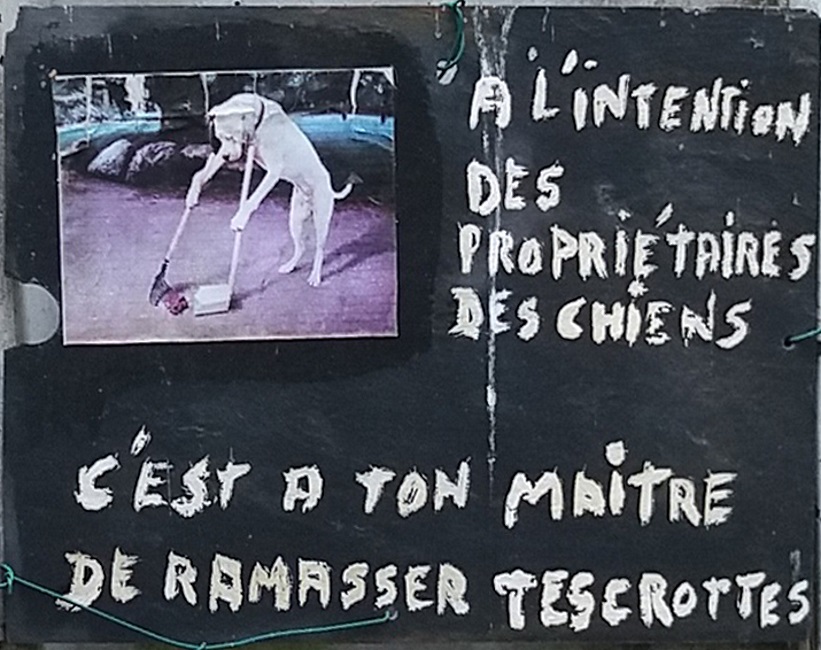 A L'INTENTION
DES
PROPRIÉTAIRES
DES CHIENS
C'EST A TON MAITRE
DE RAMASSER TES CROTTES